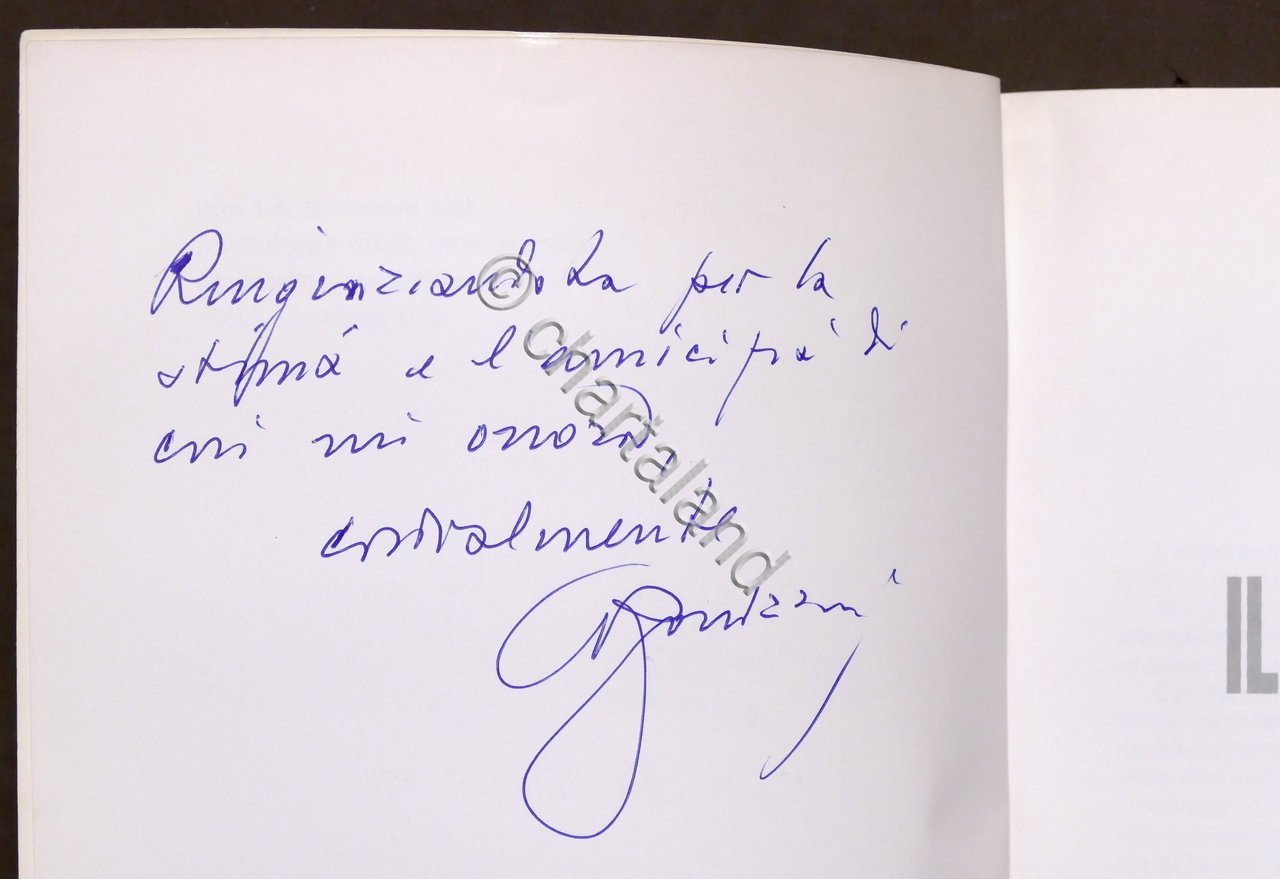 RingraziandoLa per la
stima e l'amicizia di
cui mi onora,
cordialmente
© chartaland
IL